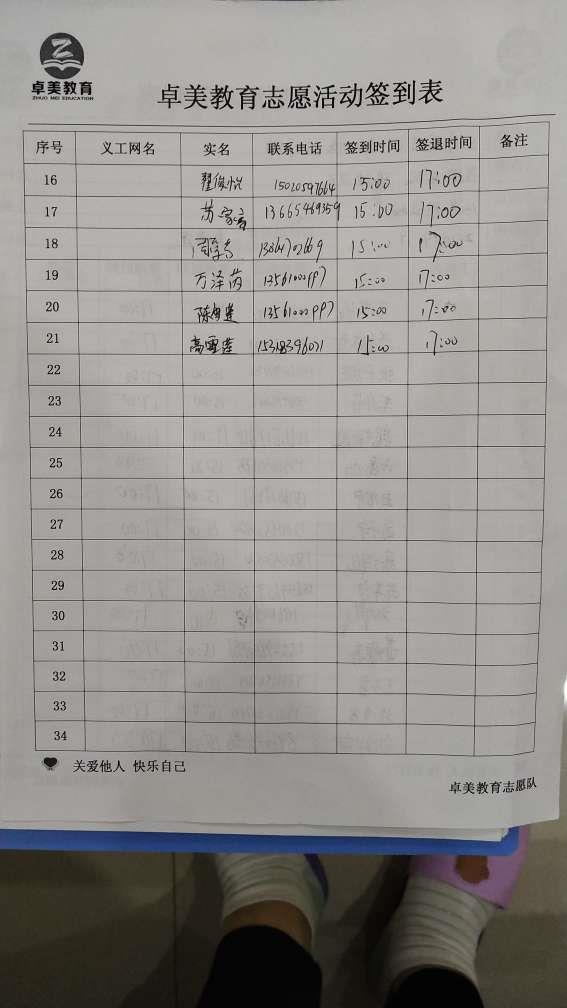 卓美教育
ZHUO MEI EDUCATION
卓美教育志愿活动签到表
序号 义工网名 实名 联系电话 签到时间 签退时间 备注
16 15:00 17:00
17 苏 13665469359 15:00 17:00
18 15:00 17:00
19 万泽芮 13561000997 15:00 17:00
20 陈 莲 13561000997 15:00 17:00
21 高雪莲 15318396071 15:00 17:00
22
23
24
25
26
27
28
29
30
31
32
33
34
关爱他人 快乐自己
卓美教育志愿队